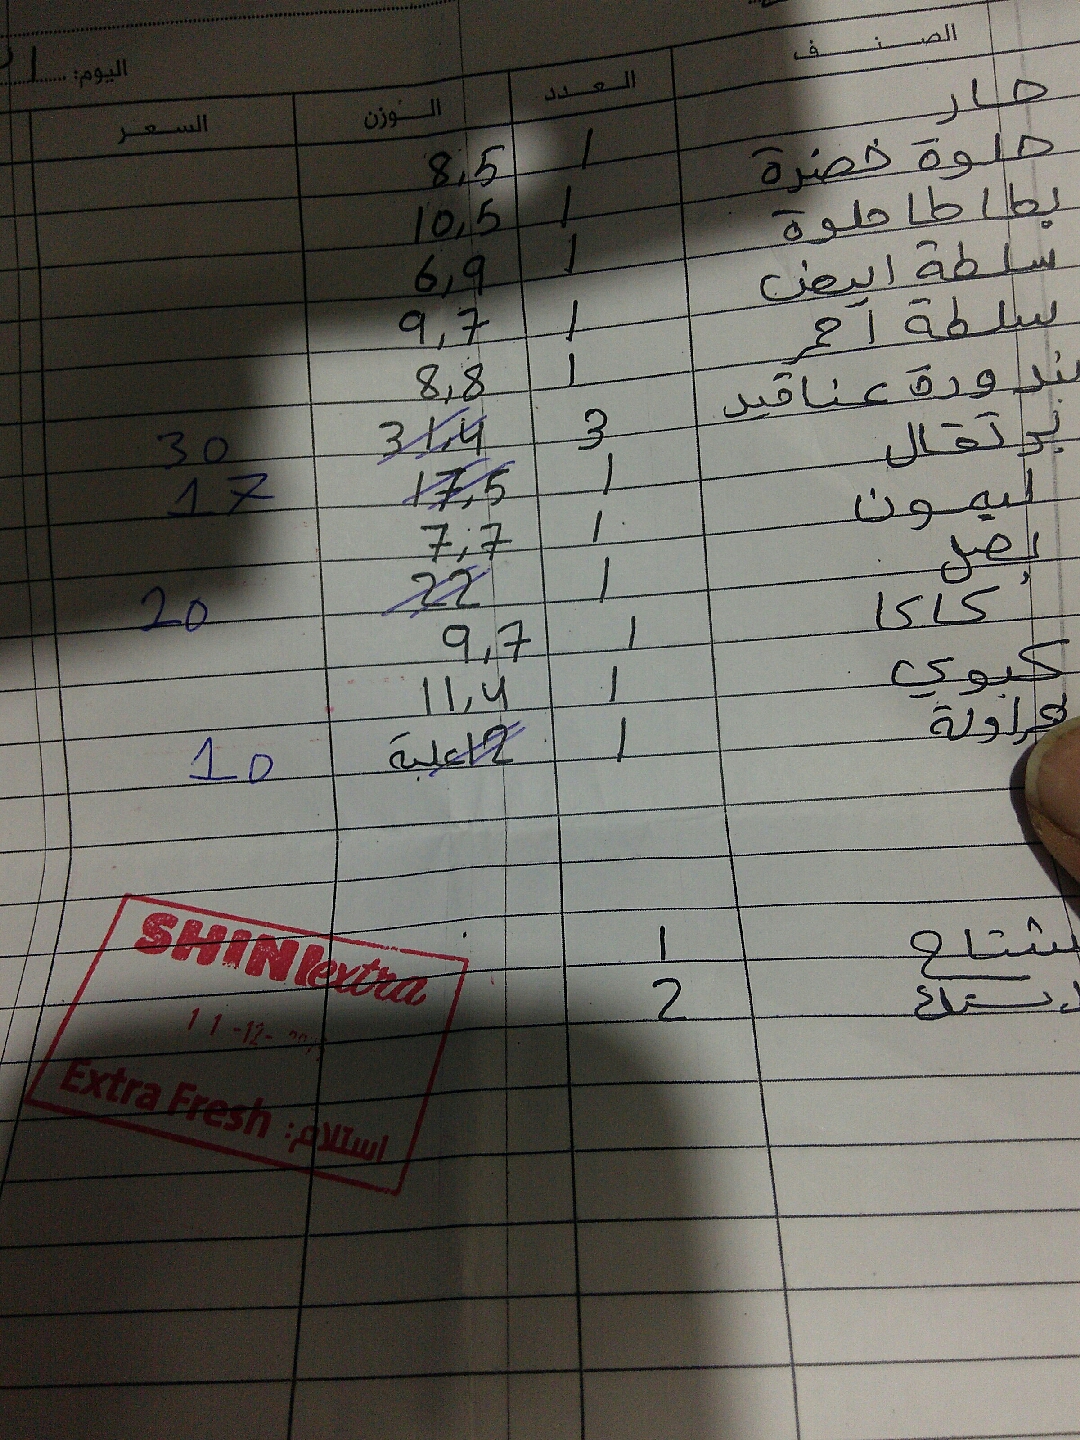 اليوم:
الصنف العدد الوزن السعر
حار 1 8,5
حلوة خضرة 1 10,5
بطاطا حلوة 1 6,9
سلطة ابيض 1 9,7
سلطة أحمر 1 8,8
بندورة عناقيد 3 31,4 30
برتقال 1 17,5 17
ليمون 1 7,7
بصل 1 22 20
كاكا 1 9,7
كيوي 1 11,4
فراولة 1 12 علبة 10
1
2
SHINI extra
11-12-
Extra Fresh استلام: